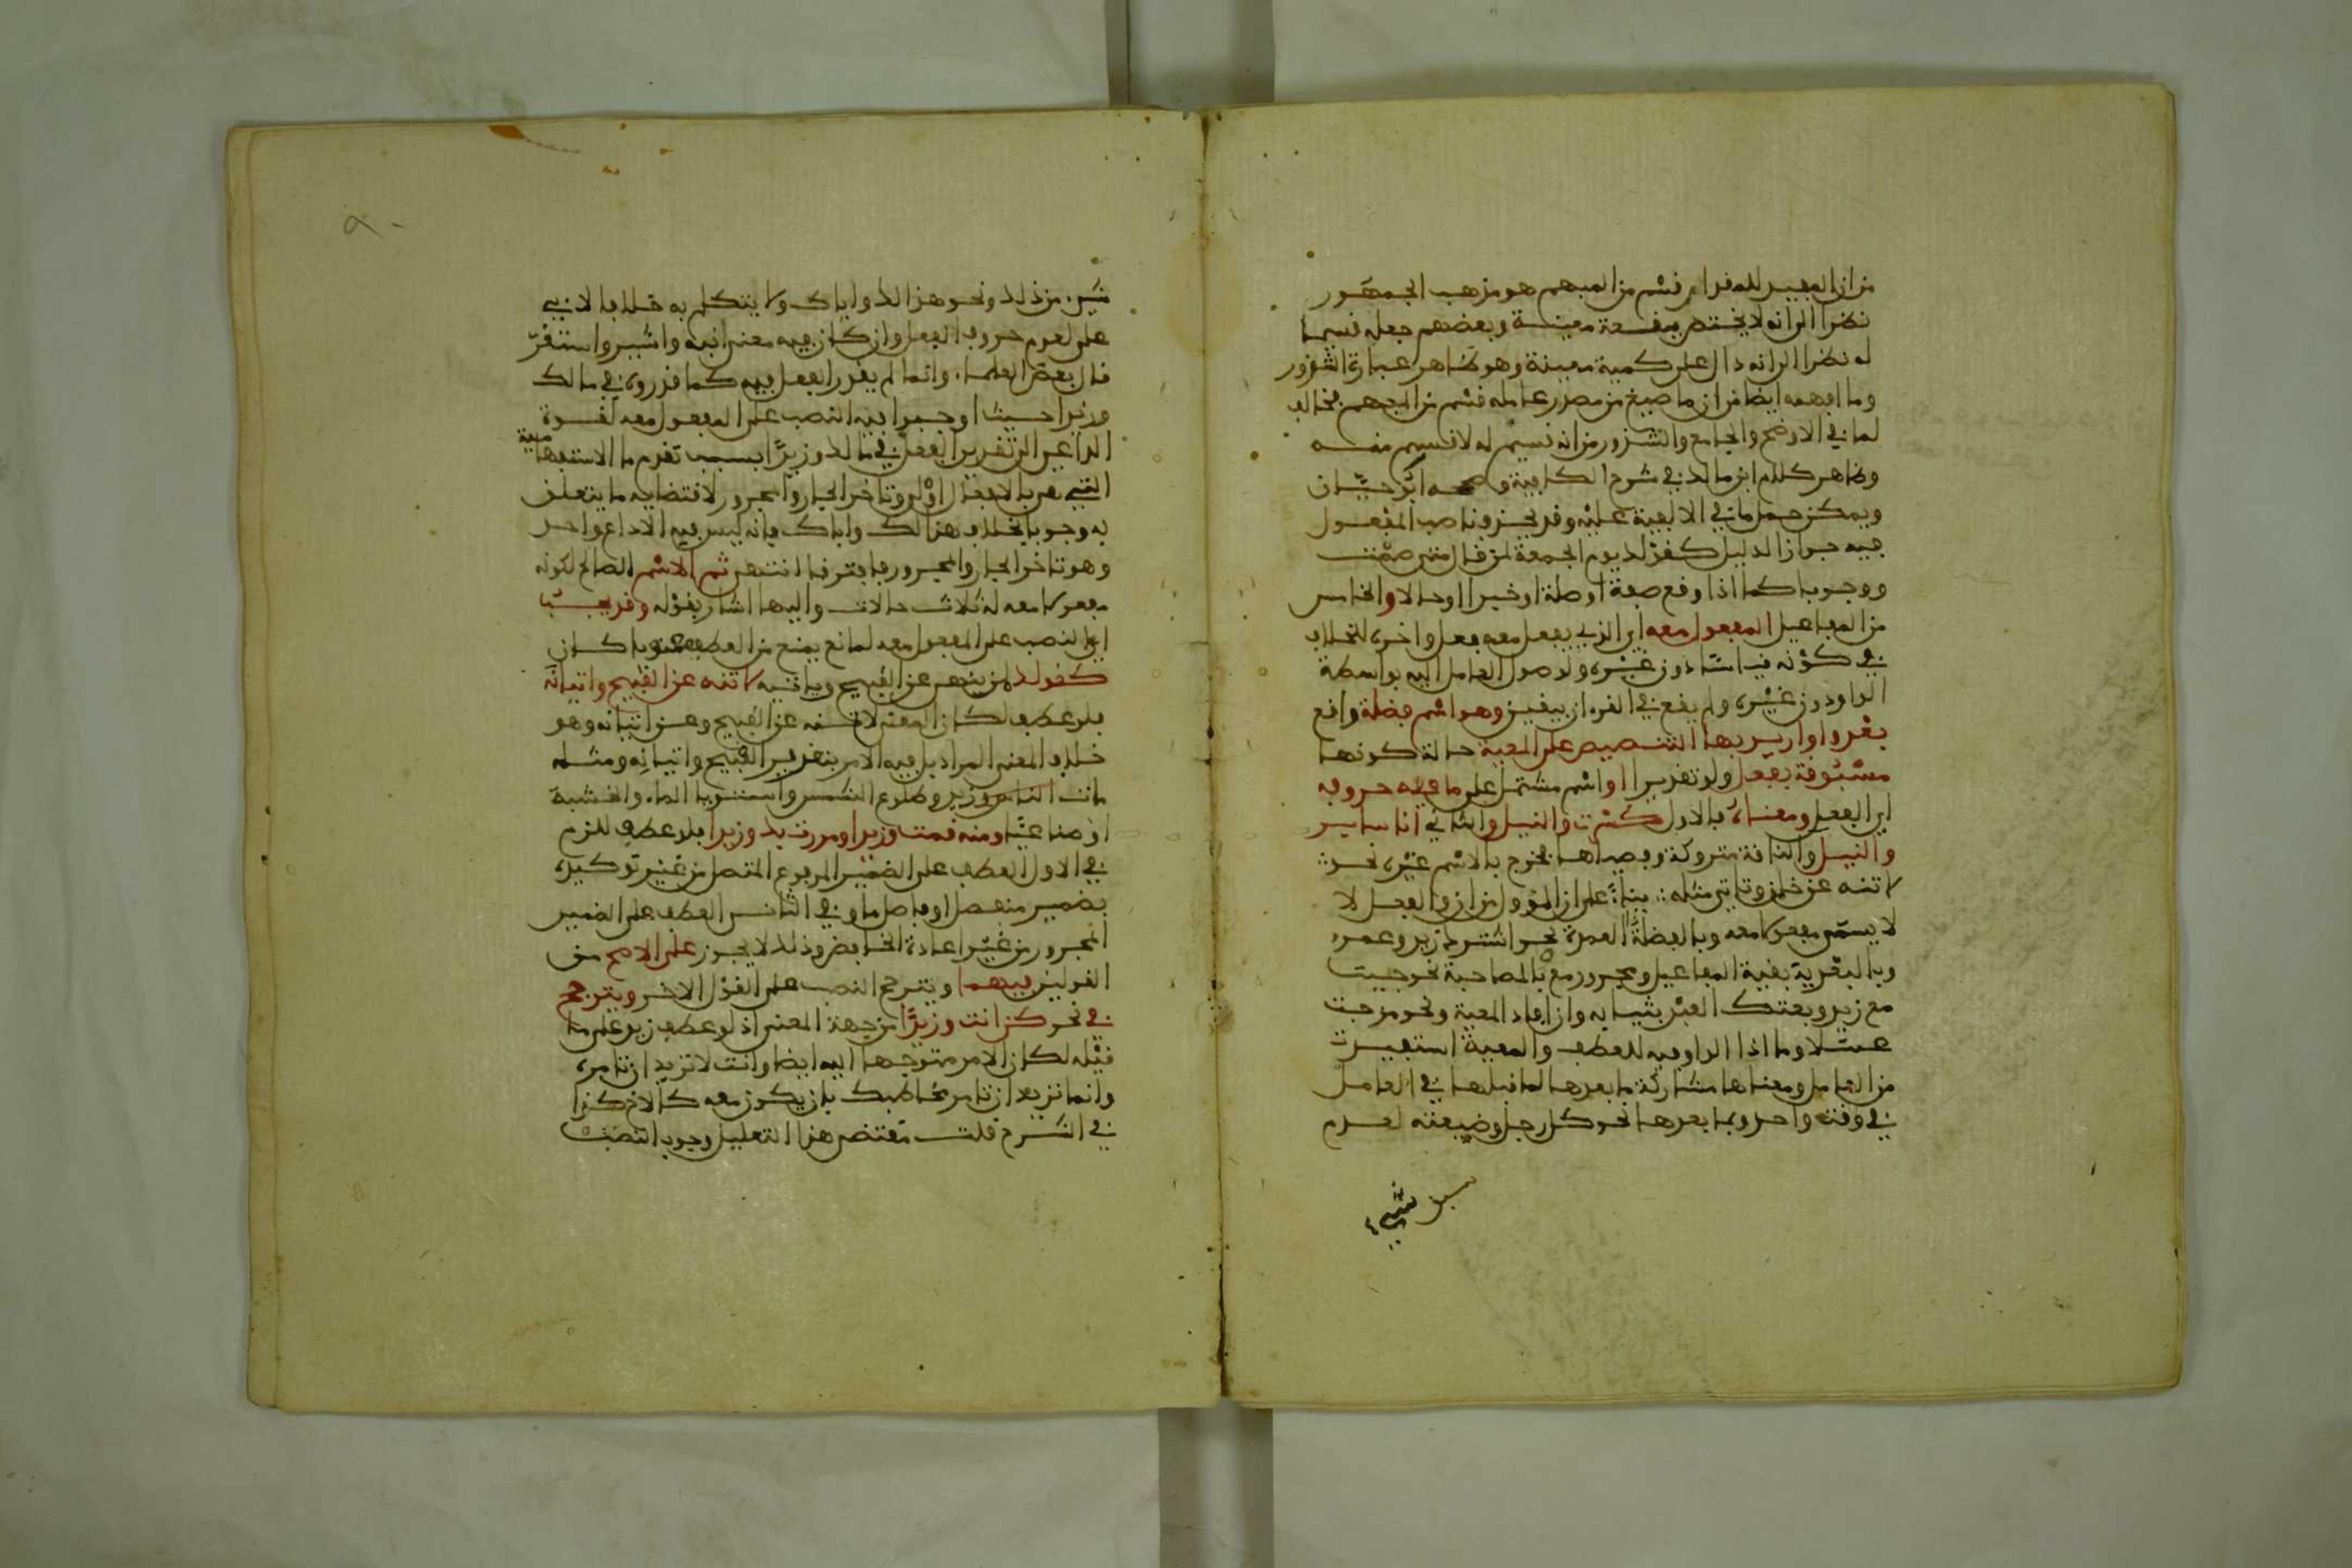 من ان المفيد للمقدار قسم من المبهم هو مذهب الجمهور
نظرا الى انه لا يختص ببقعة معينة وبعضهم جعله قسيما
له نظرا الى انه دال على كمية معينة وهو ظاهر عبارة الشذور
وما افهمه ايضا من ان ما صيغ من مصدر عامله قسم من المبهم مخالف
لما في الاوضح والجامع والشذور من انه قسيم له لا قسيم منه
وظاهر كلام ابن مالك في شرح الكافية وصححه ابو حيان
ويمكن حمل ما في الالفية عليه وقد يحذف ناصب المفعول
فيه جوازا لدليل كقولك يوم الجمعة لمن قال متى صمت
ووجوبا كما اذا وقع صفة او صلة او خبرا او حالا والخامس
من المفاعيل المفعول معه اي الذي يفعل معه فعل واخره للخلاف
في كونه قياسا دون غيره ولوصول العامل اليه بواسطة
الواو دون غيره ولم يقع في القران بيقين وهو اسم فضلة واقع
بعد واو اريد بها التنصيص على المعية حالة كونها
مسبوقة بفعل ولو تقديرا او اسم مشتمل على ما فيه حروفه
اي الفعل ومعناه فالاول كسرت والنيل والثاني انا ساير
والنيل والناقة متروكة وفصيلها فخرج بالاسم غيره نحو
لا تنه عن خلق وتاتي مثله بناء على ان المؤول من ان والفعل لا
لا يسمى مفعولا معه وبالفضلة العمدة نحو اشترك زيد وعمرو
وبالبعدية بقية المفاعيل ومجرور مع وبا المصاحبة نحو جئت
مع زيد وبعتك العبد بثيابه وان افاد المعية ونحو مزجت
عسلا وما اذا الواو فيه للعطف والمعية استفيدت
من العامل ومعناها مشاركة ما بعدها لما قبلها في العامل
في وقت واحد وبما بعدها نحو كل رجل وضيعته لعدم
شيء
شيء من ذلك ونحو هذا لك واباك ولا يتكلم به خلافا لابي
علي لعدم حروف الفعل وان كان فيه معنى انبه واشير واستقر
قال بعض العلماء وانما لم يقدر الفعل فيه كما قدروه في ما لك
وزيدا حيث اوجبوا فيه النصب على المفعول معه لقوة
الداعي الى تقدير الفعل في ما لك وزيدا بسبب تقدم ما الاستفهامية
التي هي بالافعال اولى وتاخر الجار والمجرور لاقتضايه ما يتعلق
به وجوبا بخلاف هذا لك واباك فانه ليس فيه الا داع واحد
وهو تاخر الجار والمجرور فافترقا انتهى ثم الاسم الصالح لكونه
مفعولا معه له ثلاث حالات واليها اشار بقوله وقد يجب
اي النصب على المفعول معه لمانع يمنع من العطف معنويا كان
كقولك لمن ينهى عن القبيح وياتيه لا تنه عن القبيح واتيانه
فلو عطف لكان المعنى لا تنه عن القبيح وعن اتيانه وهو
خلاف المعنى المراد بل فيه الامر بتقرير القبيح واتيانه ومثله
مات الناس وزيد وطلوع الشمس واستوى الماء والخشبة
او صناعيا ومنه قمت وزيدا ومررت بك وزيدا فلو عطف للزم
في الاول العطف على الضمير المرفوع المتصل من غير توكيده
بضمير منفصل او فاصل ما وفي الثاني العطف على الضمير
المجرور من غير اعادة الخافض وذلك لا يجوز على الاصح من
القولين فيهما ويترجح النصب على القول الاخر ويترجح
في نحو كن انت وزيدا من جهة المعنى اذ لو عطف زيد على ما
قبله لكان الامر متوجها اليه ايضا وانت لا تريد ان تامره
وانما تريد ان تامر مخاطبك بان يكون معه كالاخ كذا
في الشرح قلت مقتضى هذا التعليل وجوب النصب